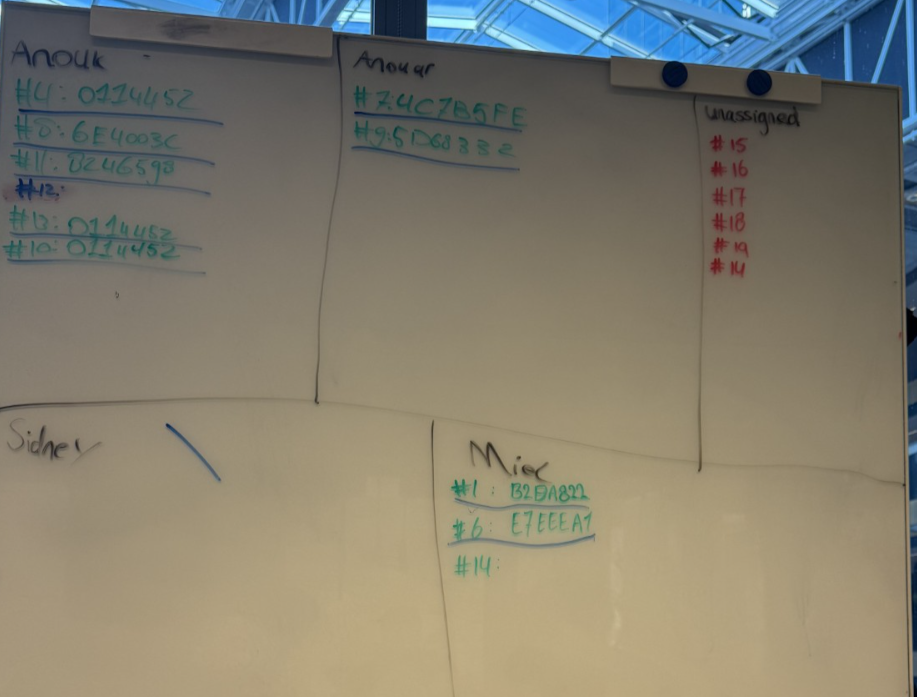 Anouk
#4: 0114452
#8: 6E4003C
#11: B246598
#12:
#13: 0114452
#10: 0114452
Anouar
#7:4C7B5FE
#9:5D68332
unassigned
#15
#16
#17
#18
#19
#14
Sidney
#1: B2EA822
#6: E7EEEA1
#14: